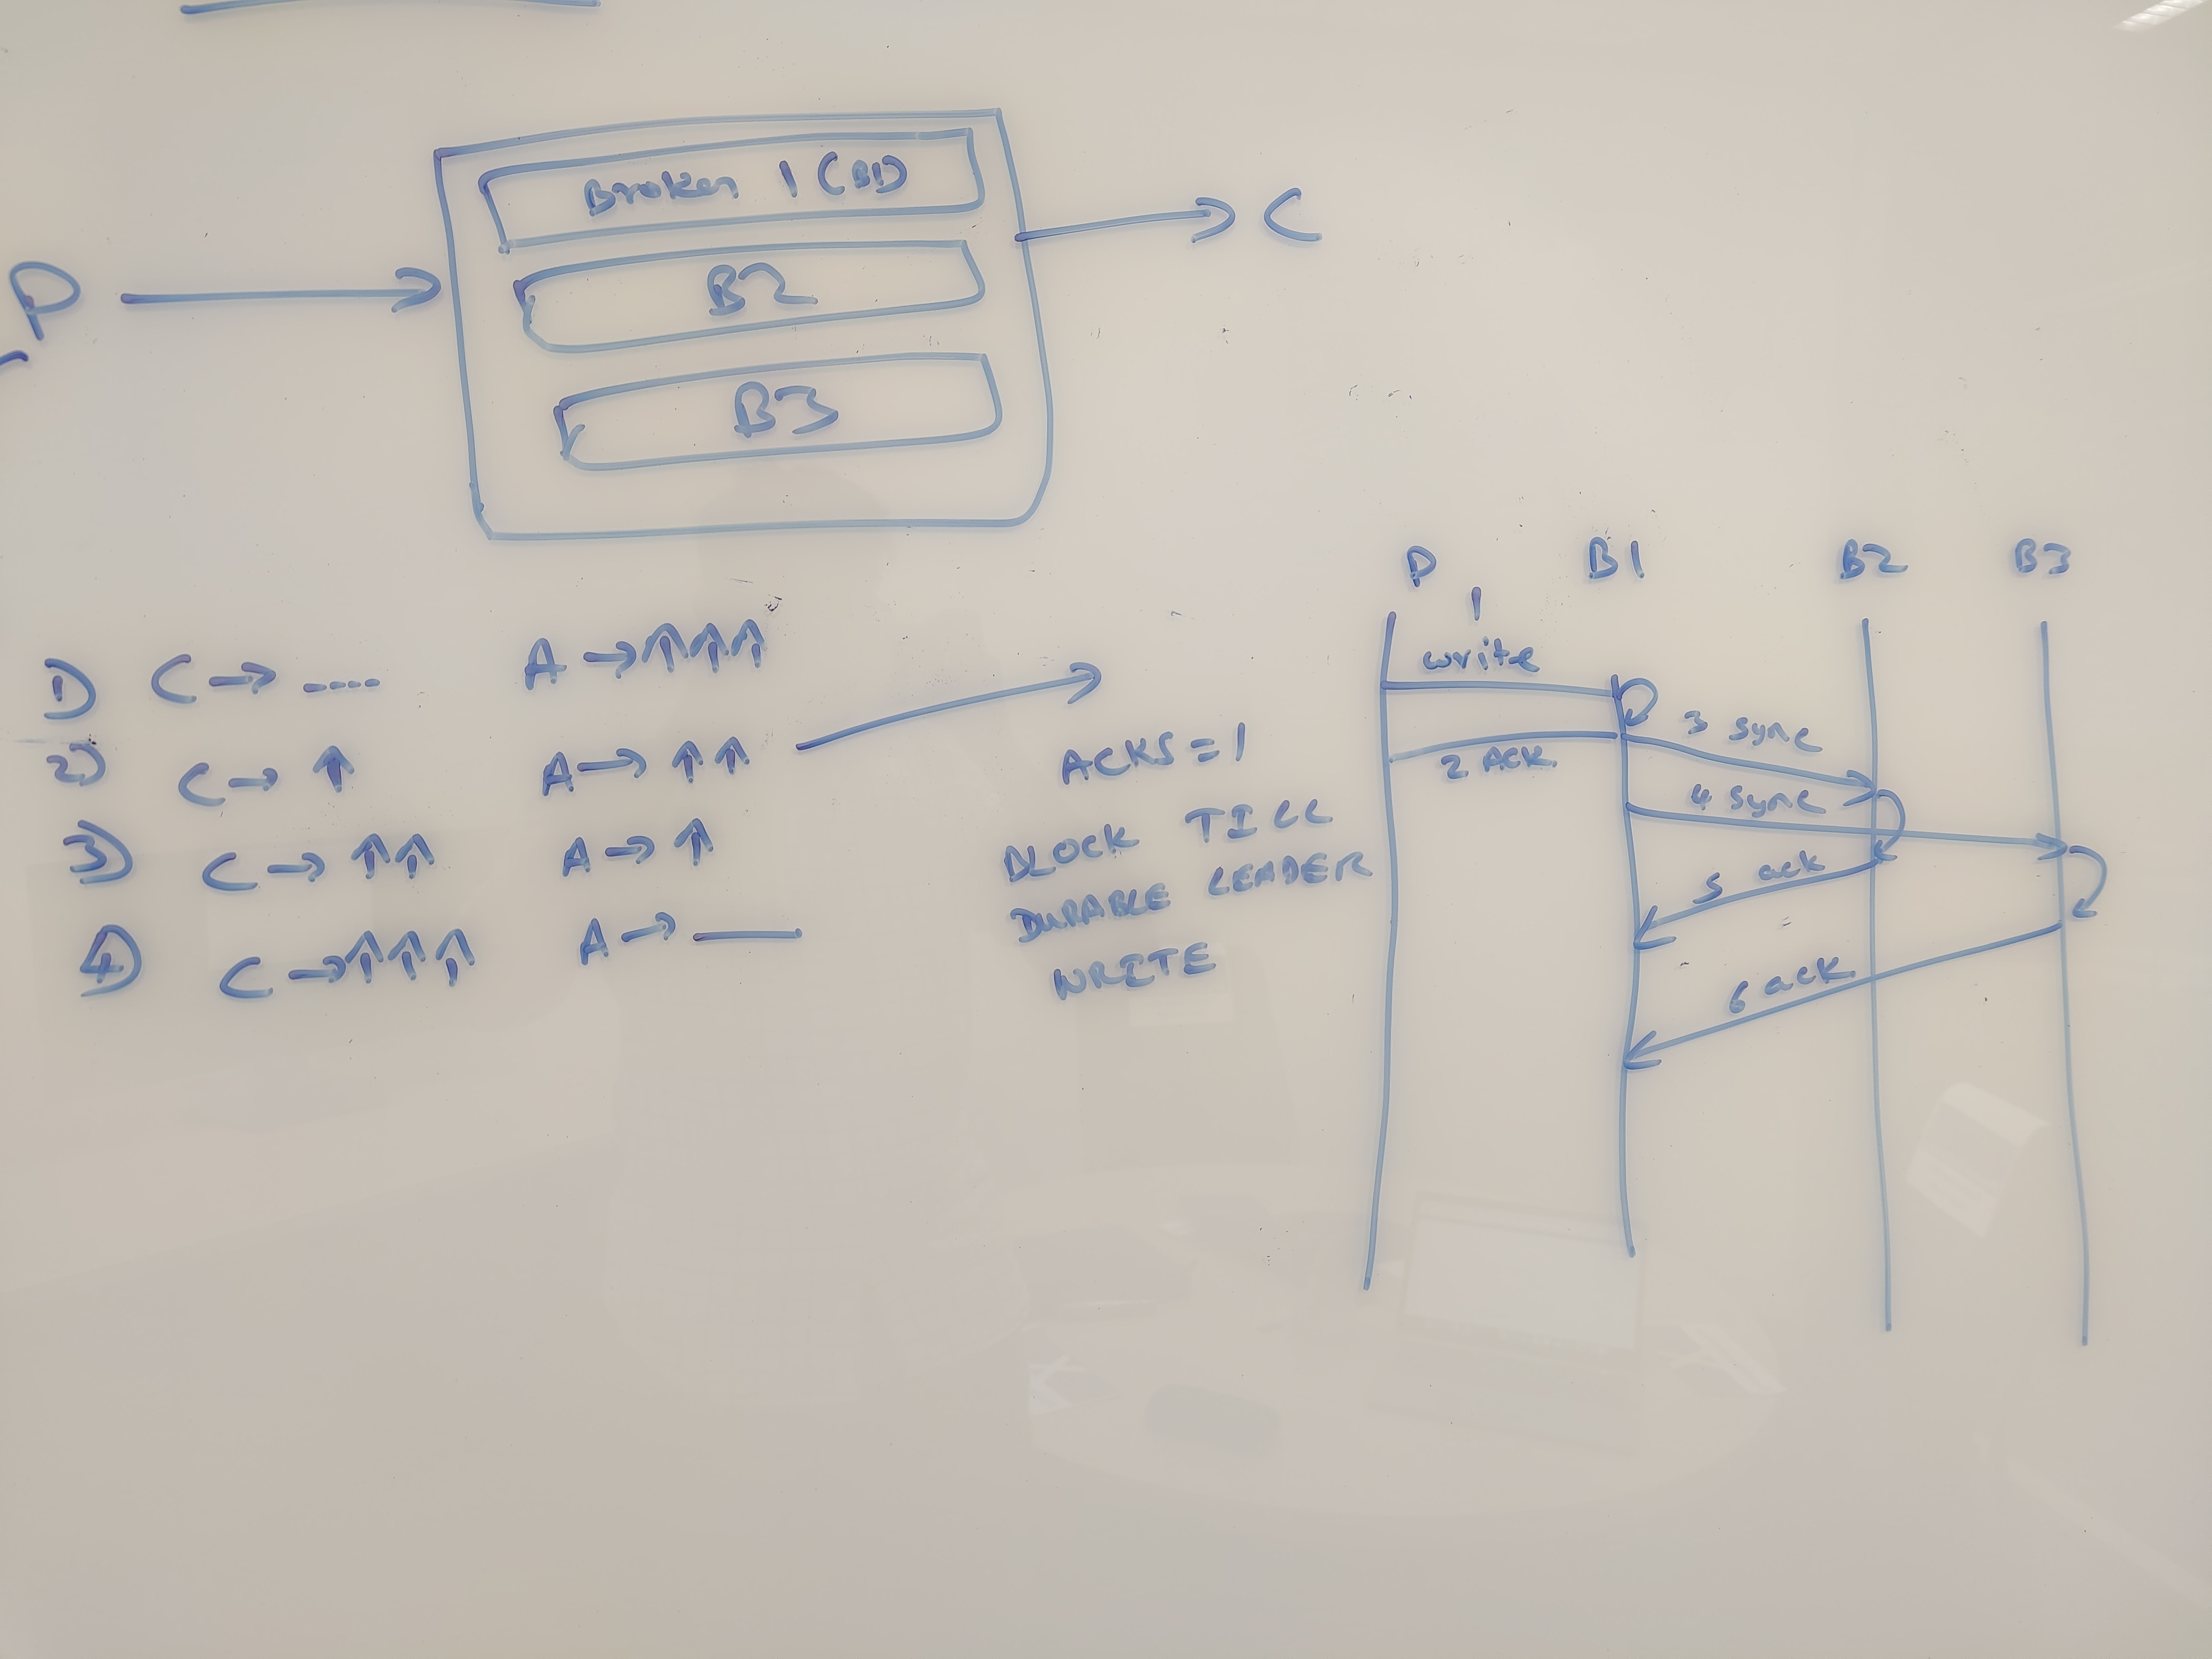 P
Broker 1 (B1)
B2
B3
C
1) C → ---- A → ↑↑↑
2) C → ↑ A → ↑↑
3) C → ↑↑ A → ↑
4) C → ↑↑↑ A → —
ACKS = 1
BLOCK TILL
DURABLE LEADER
WRITE
P B1 B2 B3
1
write
2 ACK
3 sync
4 sync
5 ack
6 ack